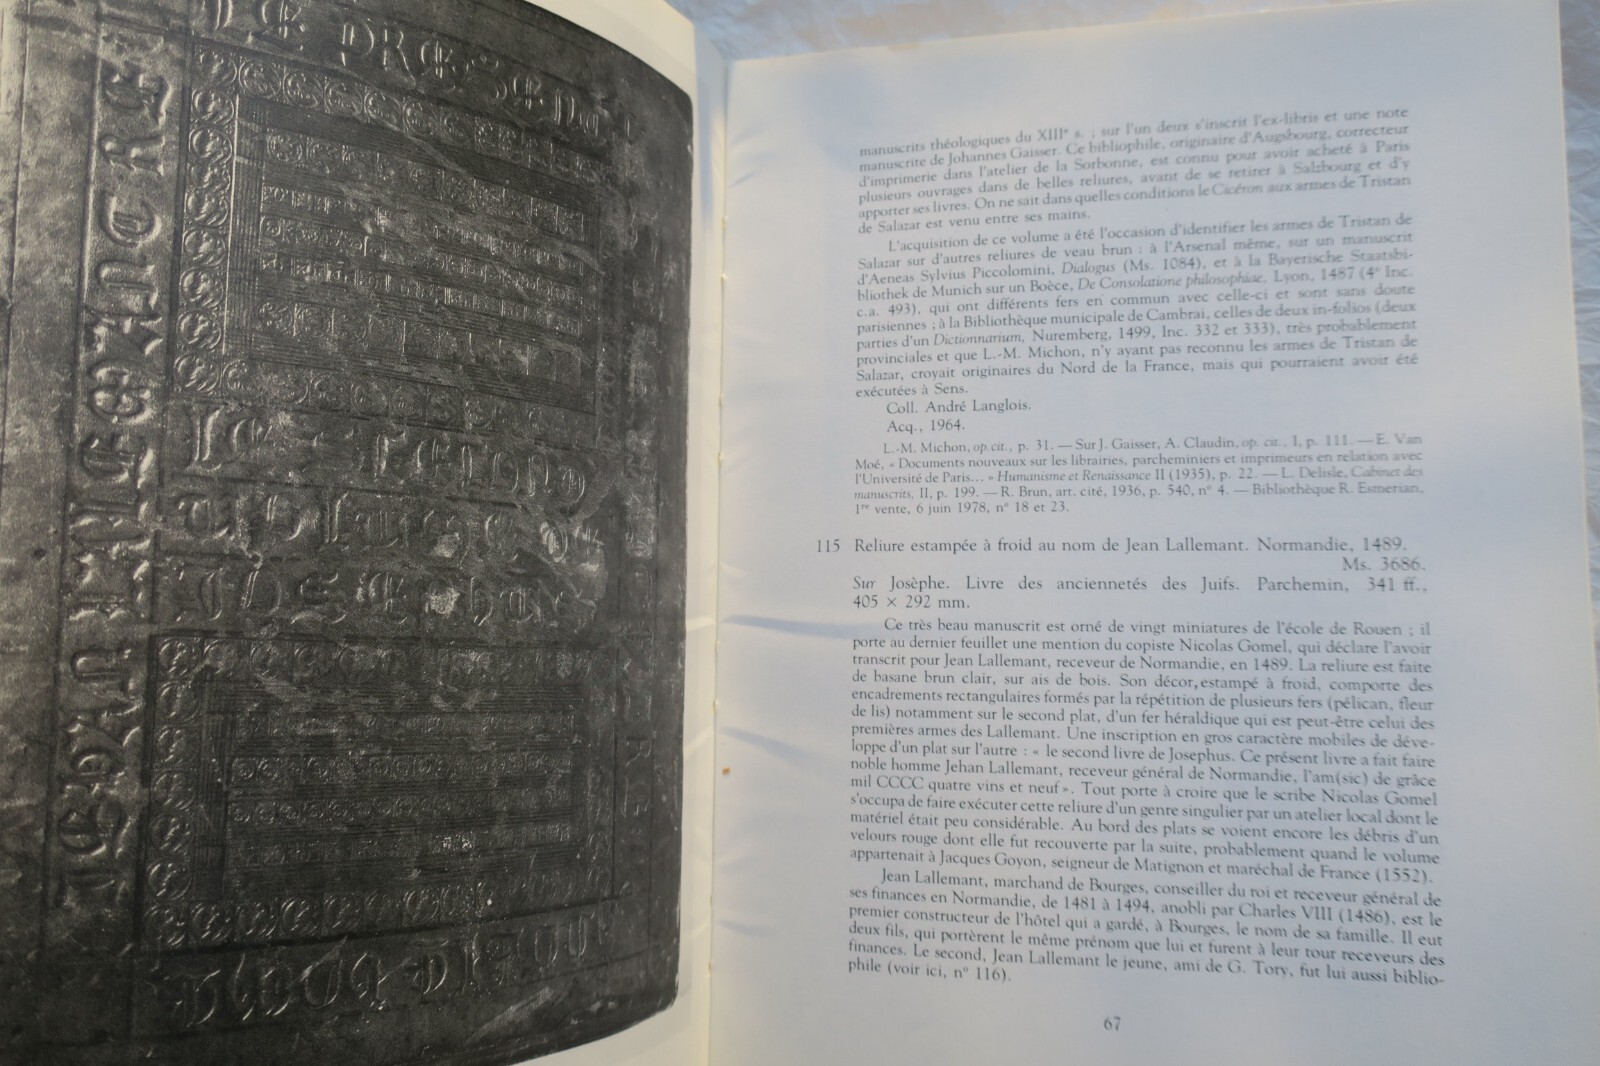 LE PRESENT
JEHAN LALEMANT
LE SECOND
IOSEPhUS
manuscrits théologiques du XIIIe s. ; sur l'un deux s'inscrit l'ex-libris et une note
manuscrite de Johannes Gaisser. Ce bibliophile, originaire d'Augsbourg, correcteur
d'imprimerie dans l'atelier de la Sorbonne, est connu pour avoir acheté à Paris
plusieurs ouvrages dans de belles reliures, avant de se retirer à Salzbourg et d'y
apporter ses livres. On ne sait dans quelles conditions le Cicéron aux armes de Tristan
de Salazar est venu entre ses mains.
L'acquisition de ce volume a été l'occasion d'identifier les armes de Tristan de
Salazar sur d'autres reliures de veau brun : à l'Arsenal même, sur un manuscrit
d'Aeneas Sylvius Piccolomini, Dialogus (Ms. 1084), et à la Bayerische Staatsbi-
bliothek de Munich sur un Boèce, De Consolatione philosophiae, Lyon, 1487 (4° Inc.
c.a. 493), qui ont différents fers en commun avec celle-ci et sont sans doute
parisiennes ; à la Bibliothèque municipale de Cambrai, celles de deux in-folios (deux
parties d'un Dictionnarium, Nuremberg, 1499, Inc. 332 et 333), très probablement
provinciales et que L.-M. Michon, n'y ayant pas reconnu les armes de Tristan de
Salazar, croyait originaires du Nord de la France, mais qui pourraient avoir été
exécutées à Sens.
Coll. André Langlois.
Acq., 1964.
L.-M. Michon, op.cit., p. 31. — Sur J. Gaisser, A. Claudin, op. cit., I, p. 111. — E. Van
Moé, « Documents nouveaux sur les librairies, parcheminiers et imprimeurs en relation avec
l'Université de Paris... » Humanisme et Renaissance II (1935), p. 22. — L. Delisle, Cabinet des
manuscrits, II, p. 199. — R. Brun, art. cité, 1936, p. 540, n° 4. — Bibliothèque R. Esmerian,
1re vente, 6 juin 1978, n° 18 et 23.
115 Reliure estampée à froid au nom de Jean Lallemant. Normandie, 1489.
Ms. 3686.
Sur Josèphe. Livre des anciennetés des Juifs. Parchemin, 341 ff.,
405 × 292 mm.
Ce très beau manuscrit est orné de vingt miniatures de l'école de Rouen ; il
porte au dernier feuillet une mention du copiste Nicolas Gomel, qui déclare l'avoir
transcrit pour Jean Lallemant, receveur de Normandie, en 1489. La reliure est faite
de basane brun clair, sur ais de bois. Son décor, estampé à froid, comporte des
encadrements rectangulaires formés par la répétition de plusieurs fers (pélican, fleur
de lis) notamment sur le second plat, d'un fer héraldique qui est peut-être celui des
premières armes des Lallemant. Une inscription en gros caractère mobiles de déve-
loppe d'un plat sur l'autre : « le second livre de Josephus. Ce présent livre a fait faire
noble homme Jehan Lallemant, receveur général de Normandie, l'am(sic) de grâce
mil CCCC quatre vins et neuf ». Tout porte à croire que le scribe Nicolas Gomel
s'occupa de faire exécuter cette reliure d'un genre singulier par un atelier local dont le
matériel était peu considérable. Au bord des plats se voient encore les débris d'un
velours rouge dont elle fut recouverte par la suite, probablement quand le volume
appartenait à Jacques Goyon, seigneur de Matignon et maréchal de France (1552).
Jean Lallemant, marchand de Bourges, conseiller du roi et receveur général de
ses finances en Normandie, de 1481 à 1494, anobli par Charles VIII (1486), est le
premier constructeur de l'hôtel qui a gardé, à Bourges, le nom de sa famille. Il eut
deux fils, qui portèrent le même prénom que lui et furent à leur tour receveurs des
finances. Le second, Jean Lallemant le jeune, ami de G. Tory, fut lui aussi biblio-
phile (voir ici, n° 116).
67